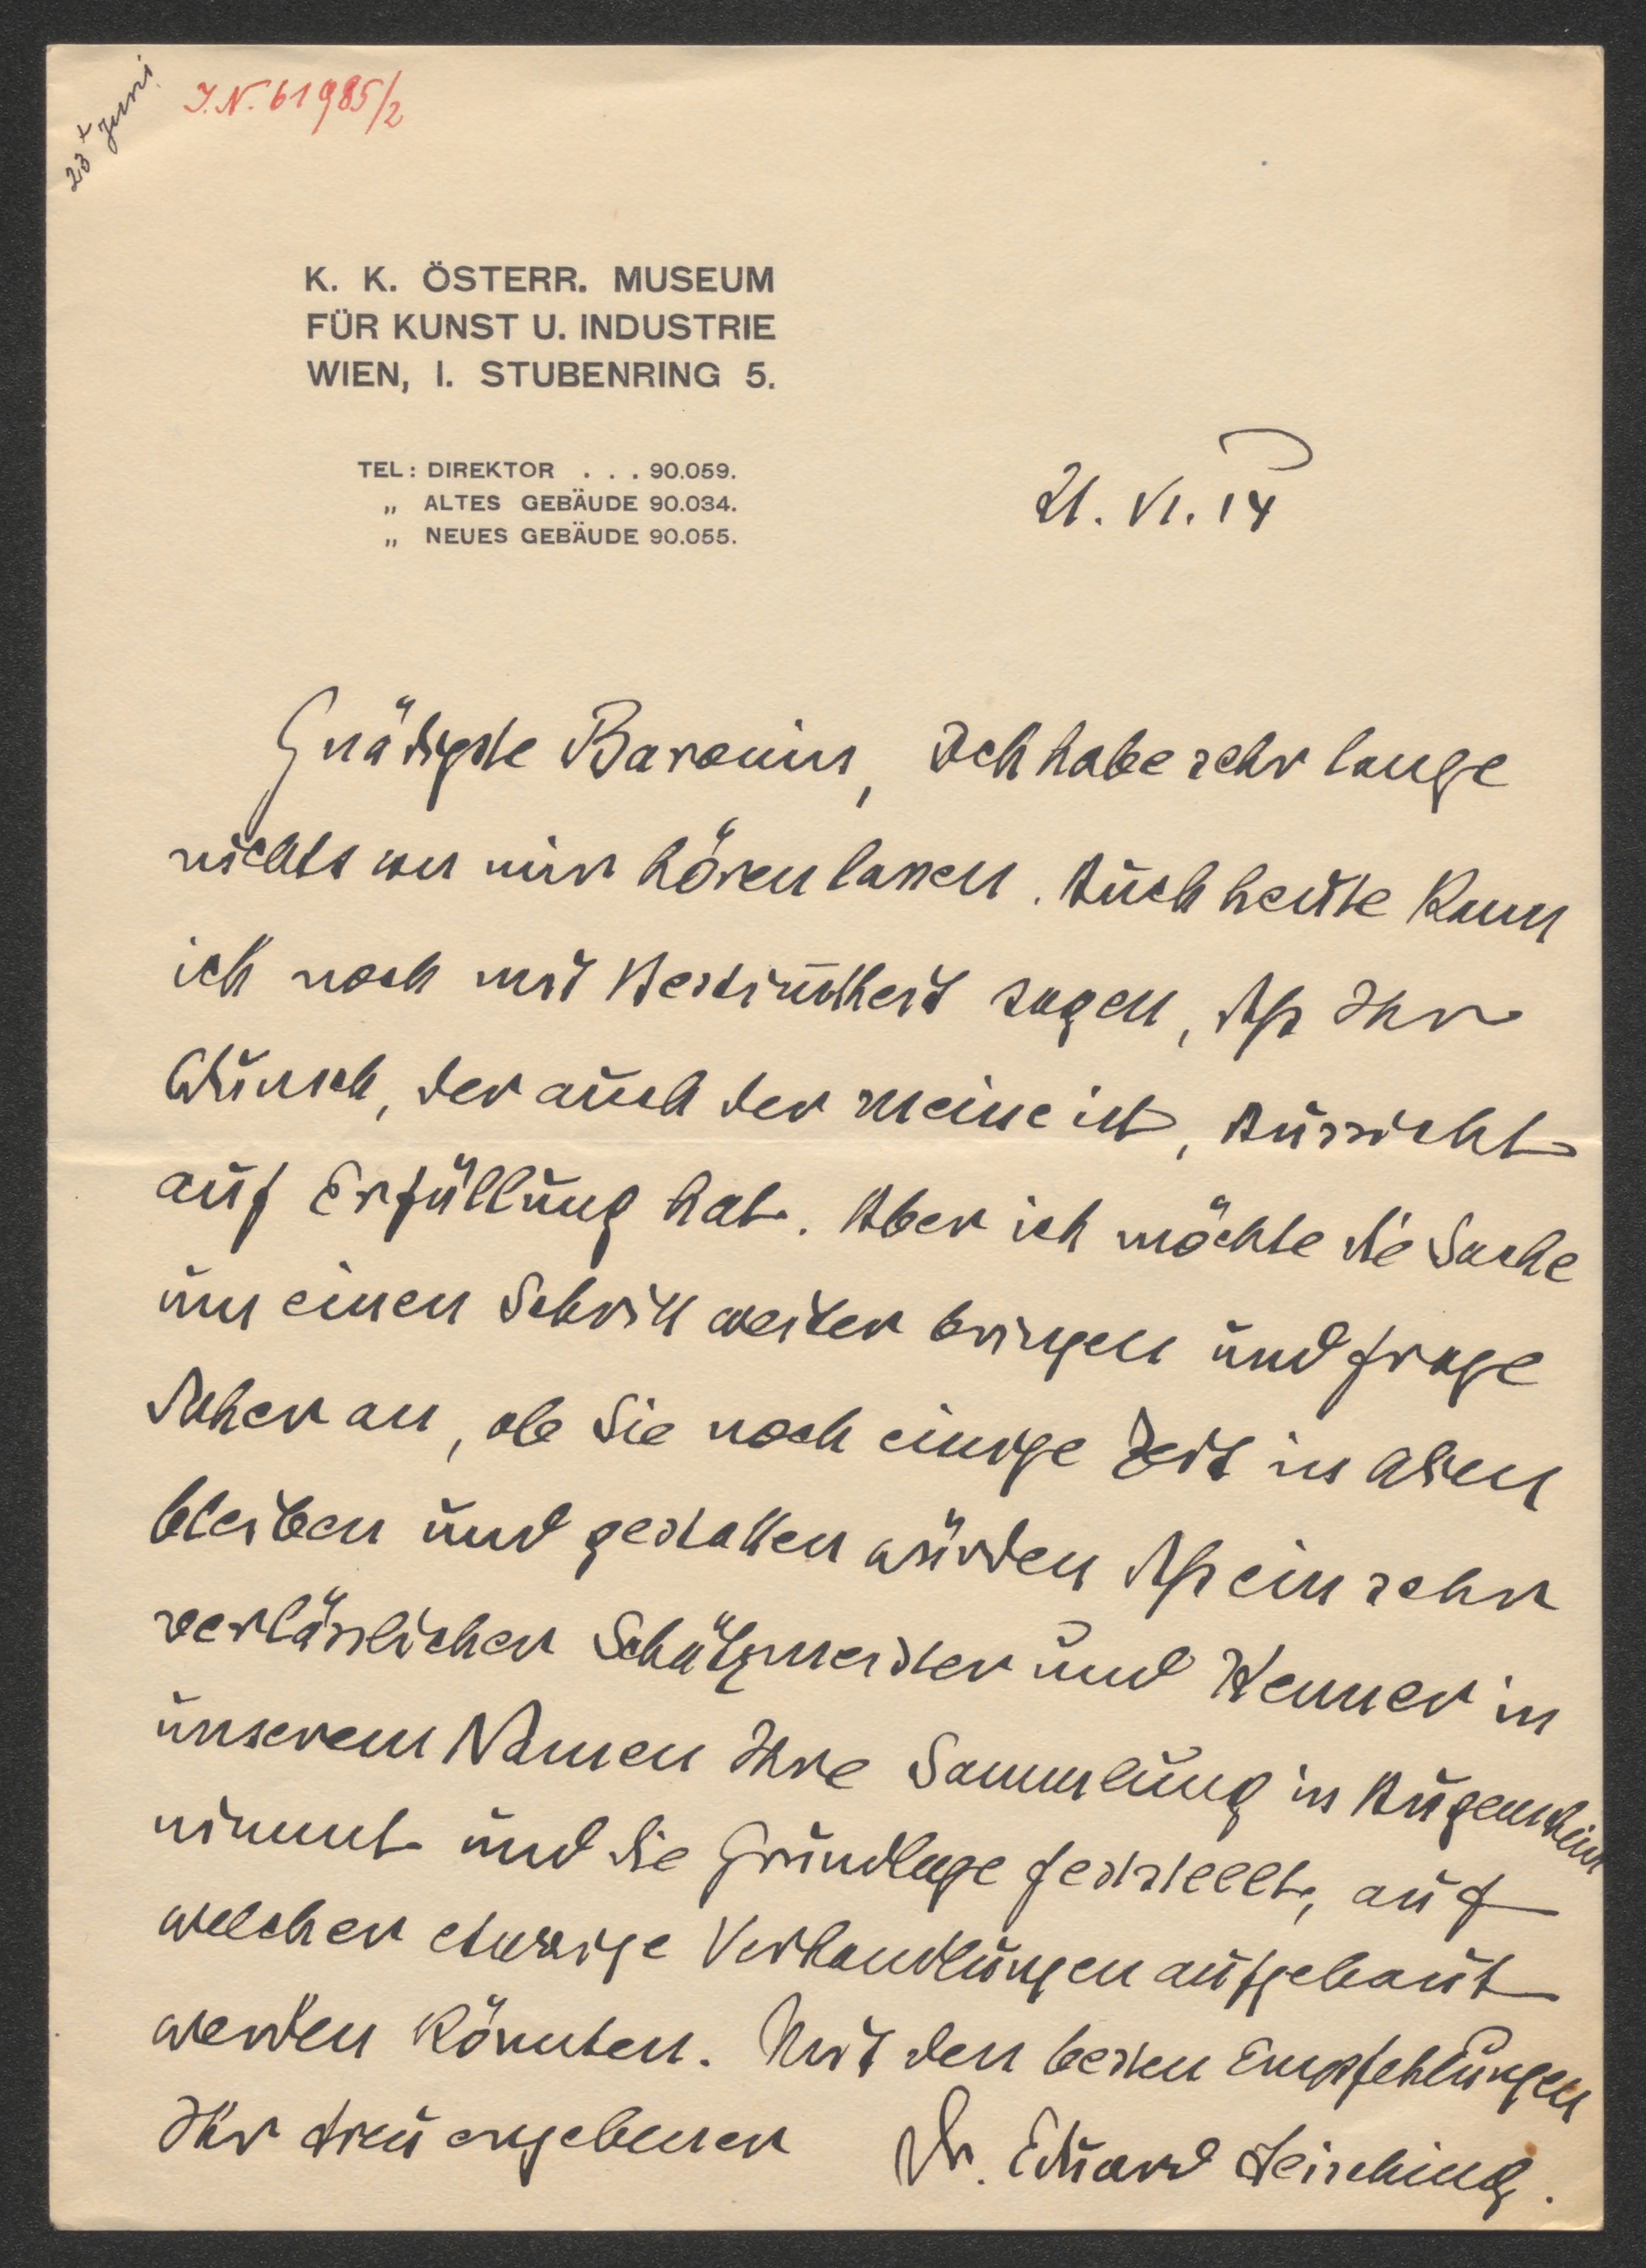 23t Juni
I.N. 61985/2
K. K. ÖSTERR. MUSEUM
FÜR KUNST U. INDUSTRIE
WIEN, I. STUBENRING 5.
TEL: DIREKTOR . . . 90.059.
„ ALTES GEBÄUDE 90.034.
„ NEUES GEBÄUDE 90.055.
21. VI. 14
Gnädigste Baronin, Ich habe sehr lange
nichts von mir hören lassen. Auch heute kann
ich noch mit Bestimtheit sagen, dß Ihr
Wunsch, der auch der meine ist, Aussicht
auf Erfüllung hat. Aber ich möchte die Sache
um einen Schritt weiter bringen und frage
daher an, ob Sie noch einige Zeit in Wien
bleiben und gestatten würden dß ein sehr
verlässlicher Schätzmeister und Kenner in
unserem Namen Ihre Sammlung in Augenschein
nimmt und die Grundlage feststellt, auf
welcher etwaige Verhandlungen aufgebaut
werden könnten. Mit den besten Empfehlungen
Ihr treu ergebener Dr. Eduard Leisching.